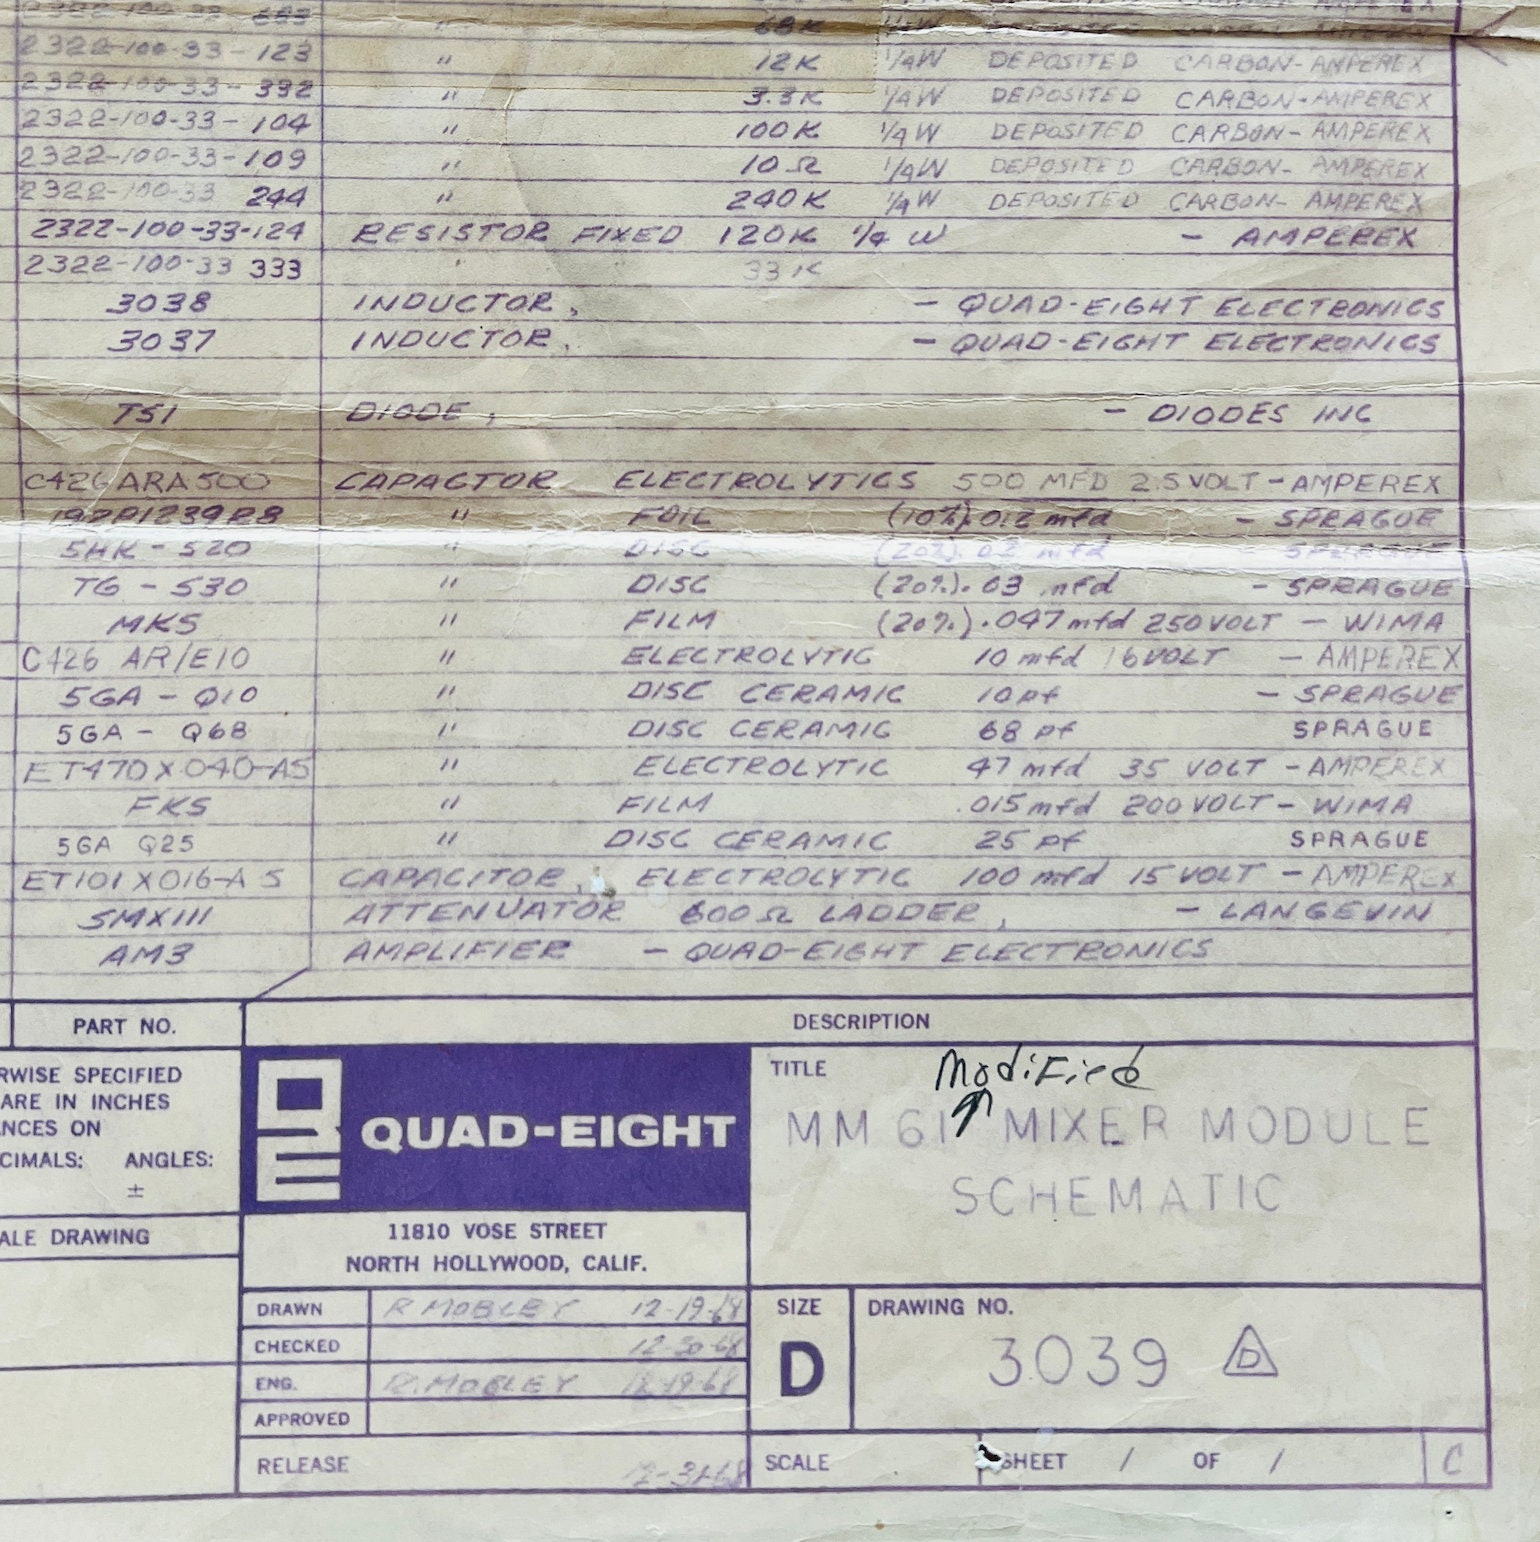 2322-100-33- 683 " 68K
2322-100-33- 123 " 12K 1/4W DEPOSITED CARBON-AMPEREX
2322-100-33- 332 " 3.3K 1/4W DEPOSITED CARBON-AMPEREX
2322-100-33- 104 " 100K 1/4W DEPOSITED CARBON-AMPEREX
2322-100-33- 109 " 10Ω 1/4W DEPOSITED CARBON-AMPEREX
2322-100-33 244 " 240K 1/4W DEPOSITED CARBON-AMPEREX
2322-100-33-124 RESISTOR FIXED 120K 1/4 W - AMPEREX
2322-100-33 333 " 33K
3038 INDUCTOR, - QUAD-EIGHT ELECTRONICS
3037 INDUCTOR, - QUAD-EIGHT ELECTRONICS
TS1 DIODE, - DIODES INC
C426ARA500 CAPACTOR ELECTROLYTICS 500 MFD 2.5VOLT-AMPEREX
192P1239R8 " FOIL (10%).012 mfd - SPRAGUE
5HK - S20 " DISC (20%).02 mfd - SPRAGUE
TG - S30 " DISC (20%).03 mfd - SPRAGUE
MKS " FILM (20%).047mfd 250VOLT - WIMA
C426 AR/E10 " ELECTROLYTIC 10 mfd 16VOLT - AMPEREX
5GA - Q10 " DISC CERAMIC 10pf - SPRAGUE
5GA - Q68 " DISC CERAMIC 68 pf SPRAGUE
ET470X040-A5 " ELECTROLYTIC 47 mfd 35 VOLT - AMPEREX
FKS " FILM .015mfd 200VOLT- WIMA
5GA Q25 " DISC CERAMIC 25 pf SPRAGUE
ET101X016-A5 CAPACITOR, ELECTROLYTIC 100 mfd 15VOLT - AMPEREX
SMX111 ATTENUATOR 600Ω LADDER, - LANGEVIN
AM3 AMPLIFIER - QUAD-EIGHT ELECTRONICS
PART NO. DESCRIPTION
RWISE SPECIFIED
ARE IN INCHES
NCES ON
CIMALS: ANGLES:
±
ALE DRAWING
QUAD-EIGHT
11810 VOSE STREET
NORTH HOLLYWOOD, CALIF.
DRAWN R MOBLEY 12-19-68
CHECKED 12-30-68
ENG. R. MOBLEY 12-19-68
APPROVED
RELEASE 12-31-68
TITLE Modified
MM 61 MIXER MODULE
SCHEMATIC
SIZE
D
DRAWING NO.
3039 D
SCALE SHEET 1 OF 1 C